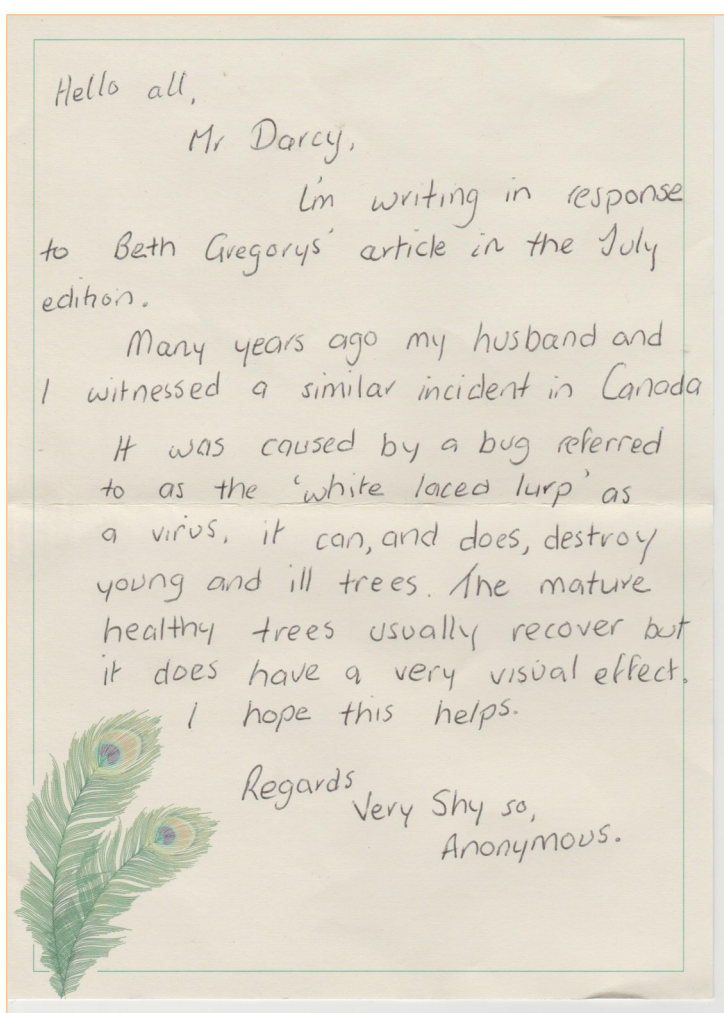 Hello all,
Mr Darcy,
I'm writing in response
to Beth Gregorys' article in the July
edition.
Many years ago my husband and
I witnessed a similar incident in Canada
It was caused by a bug referred
to as the 'white laced lurp' as
a virus, it can, and does, destroy
young and ill trees. The mature
healthy trees usually recover but
it does have a very visual effect.
I hope this helps.
Regards
Very Shy so,
Anonymous.